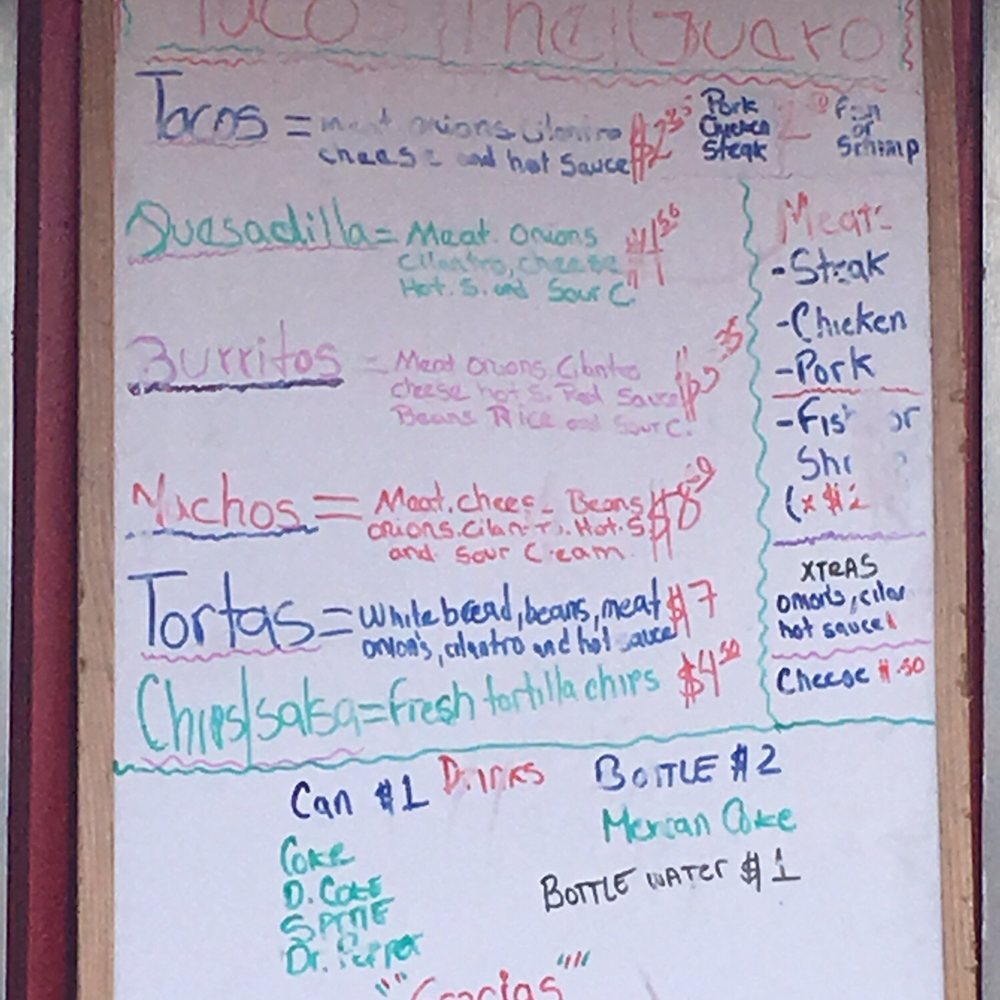 Tacos
Tacos = meat onions cilantro
cheese and hot Sauce
Pork
Chicken
Steak
or
Schrimp
Quesadilla = Meat. Onions
Cilantro, cheese
Hot. S. and Sour C.
Burritos = Meat Onions Cilantro
cheese hot S. Red Sauce
Beans Rice and Sour C.
Nachos = Meat. chees Beans
onions. Cilantro. Hot. S
and Sour Cream
Tortas = White bread, beans, meat $7
onion's, cilantro and hot sauce
Chips/salsa = fresh tortilla chips $4.50
Meats
- Steak
- Chicken
- Pork
XTRAS
hot sauce
Cheese $.50
Drinks
Can $1
Coke
D. Coke
SPRITE
Dr. Pepper
BOTTLE $2
Mexican Coke
BOTTLE WATER $1
"Gracias"